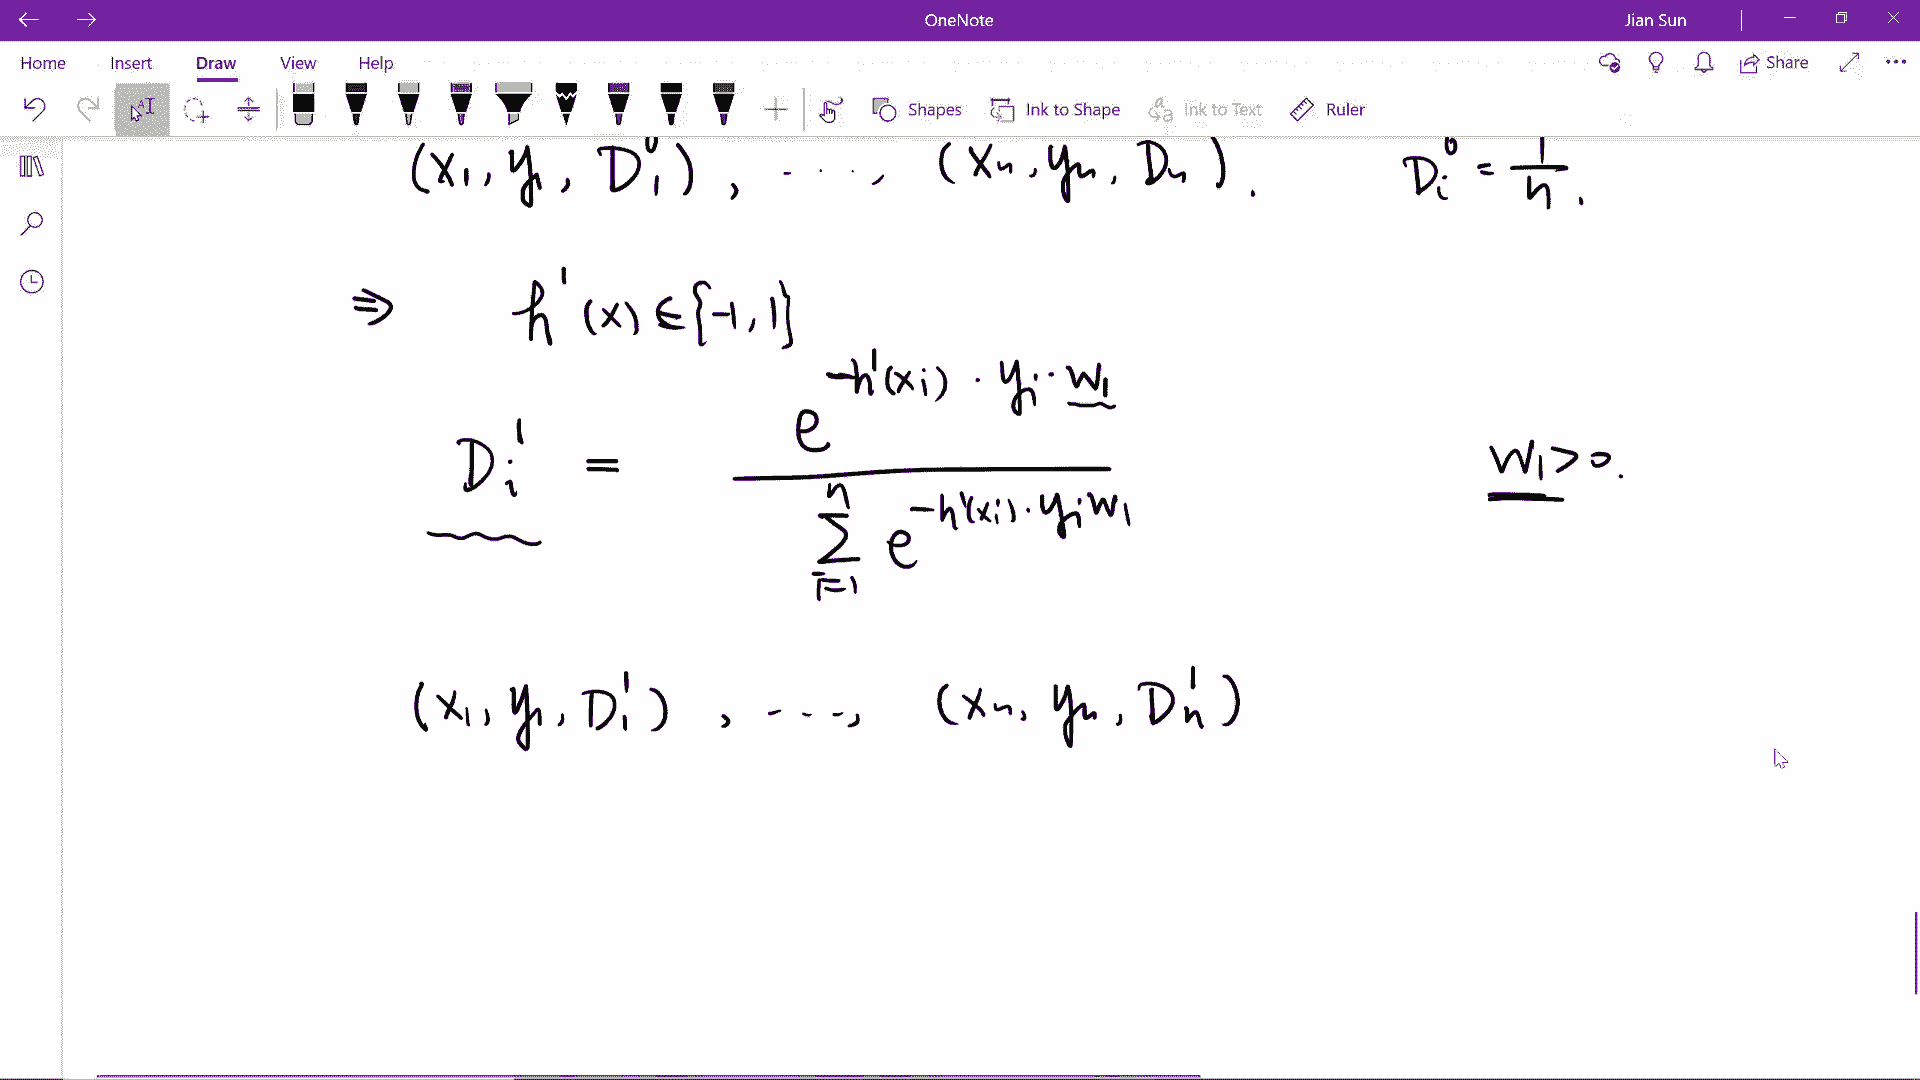 OneNote
Jian Sun
Home Insert Draw View Help
Share
Shapes Ink to Shape Ink to Text Ruler
(x₁, y₁, D₁⁰), ····, (xₙ, yₙ, Dₙ). Dᵢ⁰ = 1/n.
⇒ h¹(x) ∈ {-1, 1}
Dᵢ¹ = e^(-h¹(xᵢ) · yᵢ · w₁) / ∑ᵢ₌₁ⁿ e^(-h¹(xᵢ) · yᵢ w₁) w₁ > 0.
(x₁, y₁, D₁¹), ····, (xₙ, yₙ, Dₙ¹)